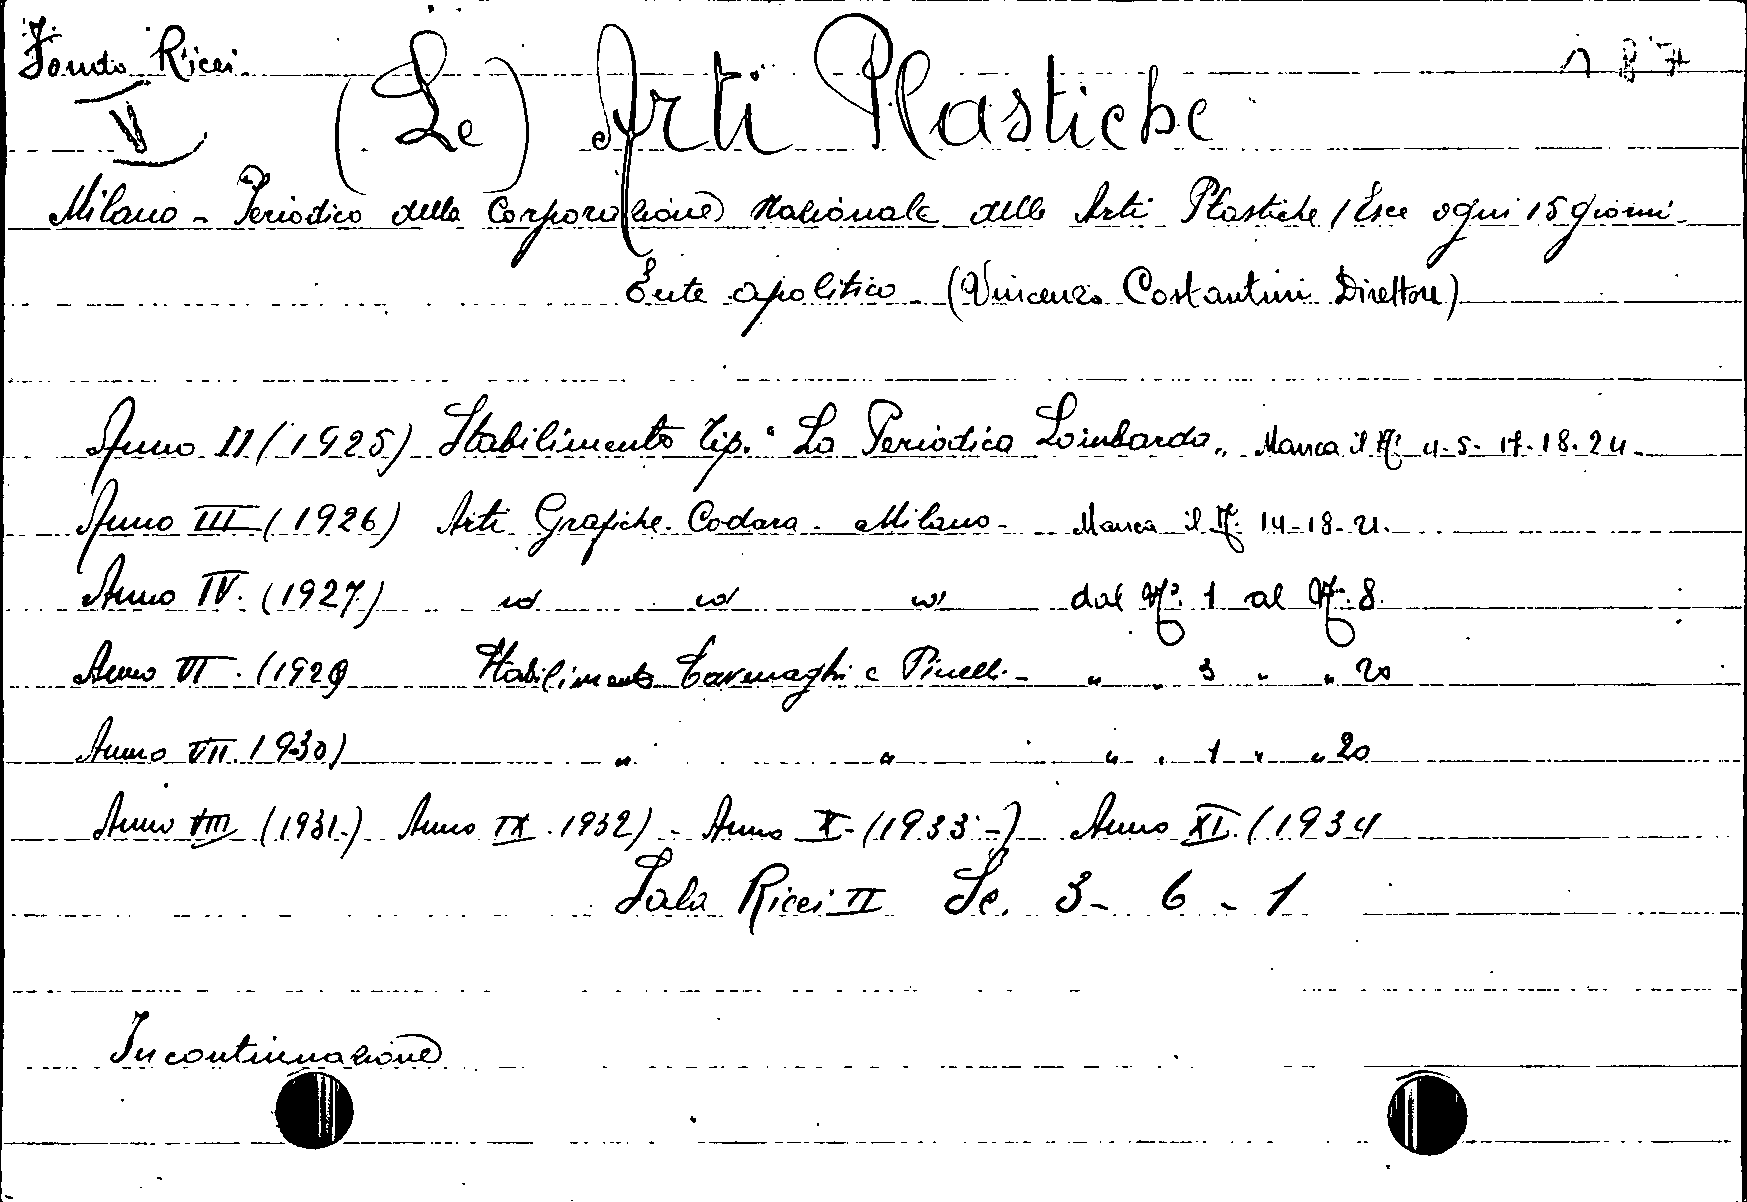 Fondo Ricci. 187
V (Le) Arti Plastiche
Milano - Periodico della Corporazione Nazionale delle Arti Plastiche / Esce ogni 15 giorni -
Ente apolitico - (Vincenzo Costantini Direttore)
Anno II (1925) Stabilimento Tip. "La Periodica Lombarda" Manca il N. 4-5-17-18-24.
Anno III (1926) Arti Grafiche Codara - Milano - Manca il N. 14-18-21.
Anno IV. (1927) id id id dal N. 1 al N. 8.
Anno VI. (1929 Stabilimento Cavenaghi e Pinelli - " " 3 " " 20
Anno VII. 1930) " " " " 1 " " 20
Anno VIII (1931-) Anno IX. 1932) - Anno X - (1933 -) Anno XI. (1934
Sala Ricci II Sc. 3 - 6 - 1
In continuazione